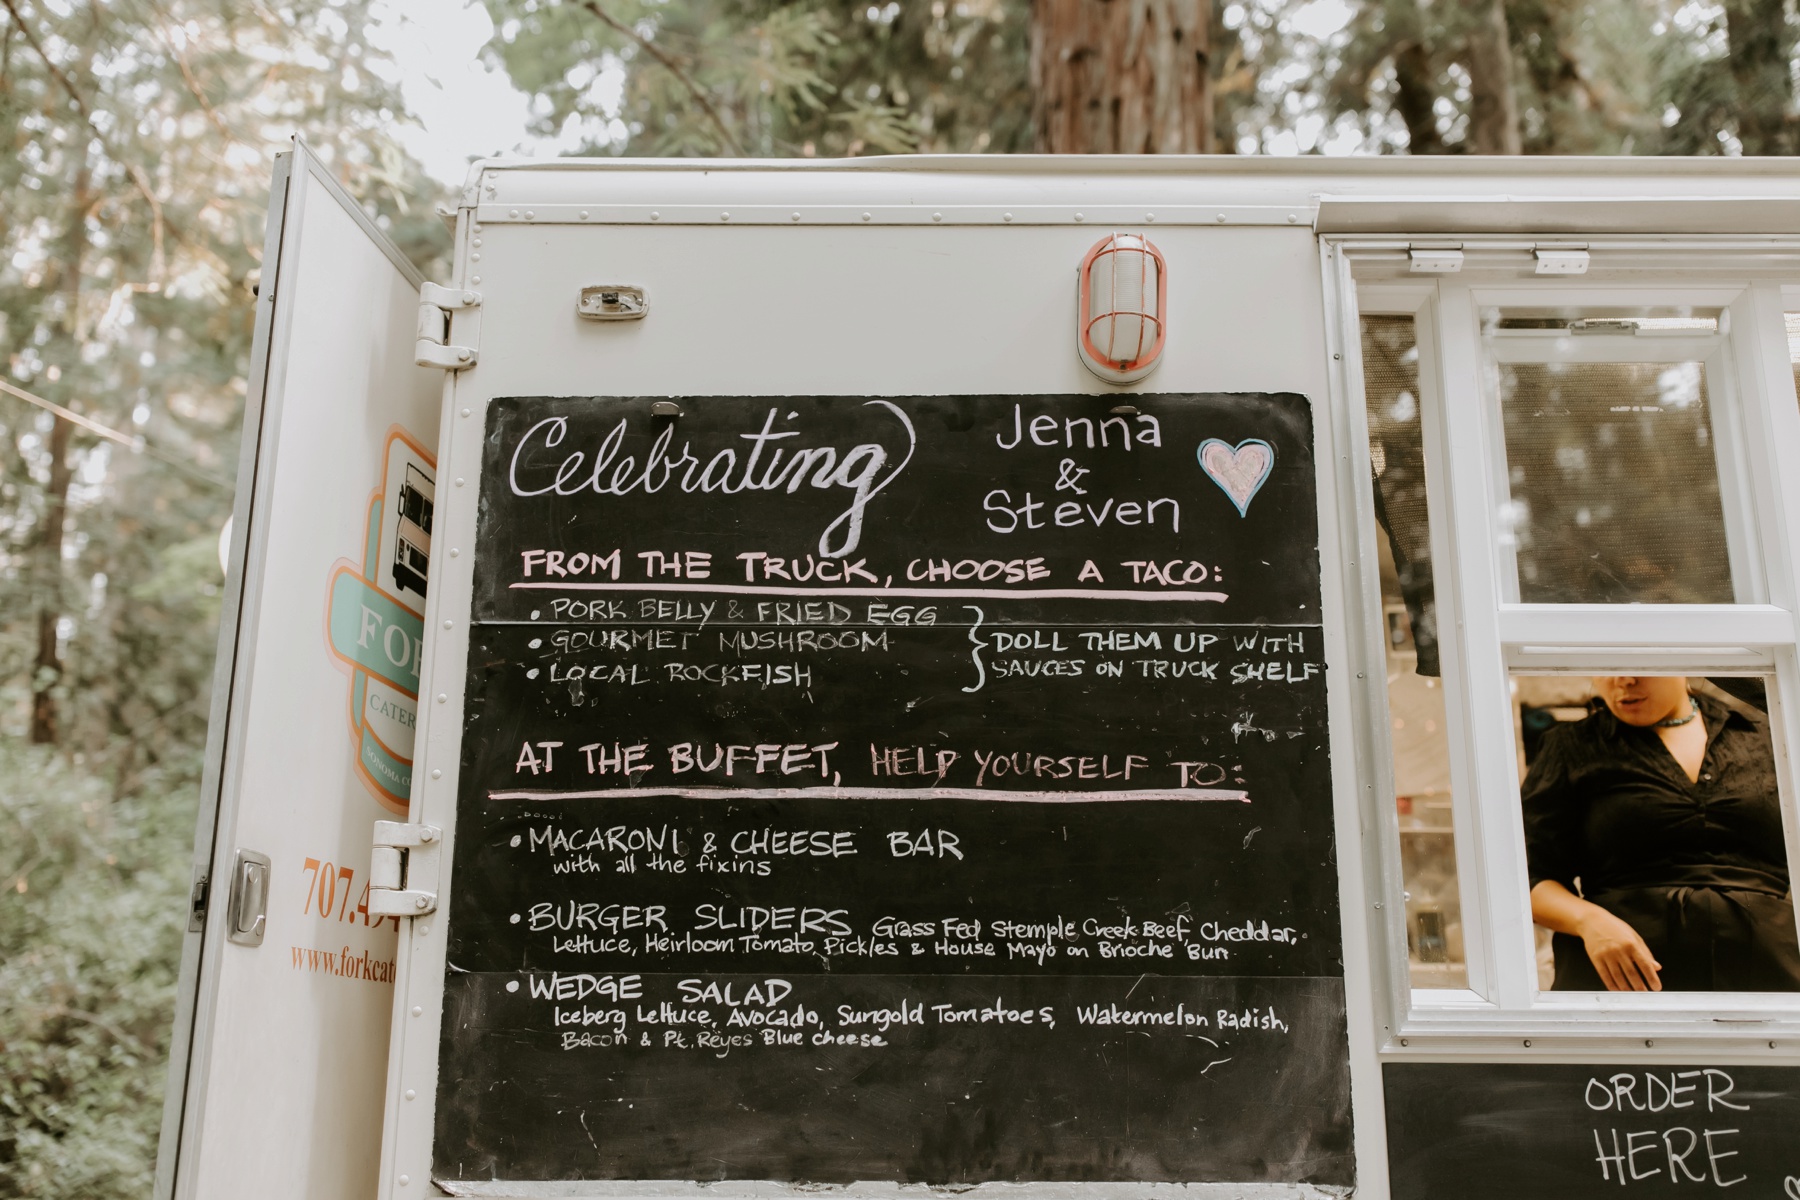 Celebrating
Jenna
&
Steven
FROM THE TRUCK, CHOOSE A TACO:
• PORK BELLY & FRIED EGG
• GOURMET MUSHROOM
• LOCAL ROCKFISH
DOLL THEM UP WITH
SAUCES ON TRUCK SHELF
AT THE BUFFET, HELP YOURSELF TO:
• MACARONI & CHEESE BAR
with all the fixins
• BURGER SLIDERS Grass Fed Stemple Creek Beef, Cheddar,
Lettuce, Heirloom Tomato, Pickles & House Mayo on Brioche Bun
• WEDGE SALAD
Iceberg Lettuce, Avocado, Sungold Tomatoes, Watermelon Radish,
Bacon & Pt. Reyes Blue cheese
ORDER
HERE
FOR
CATER
SONOMA CO
707.494
www.forkcat